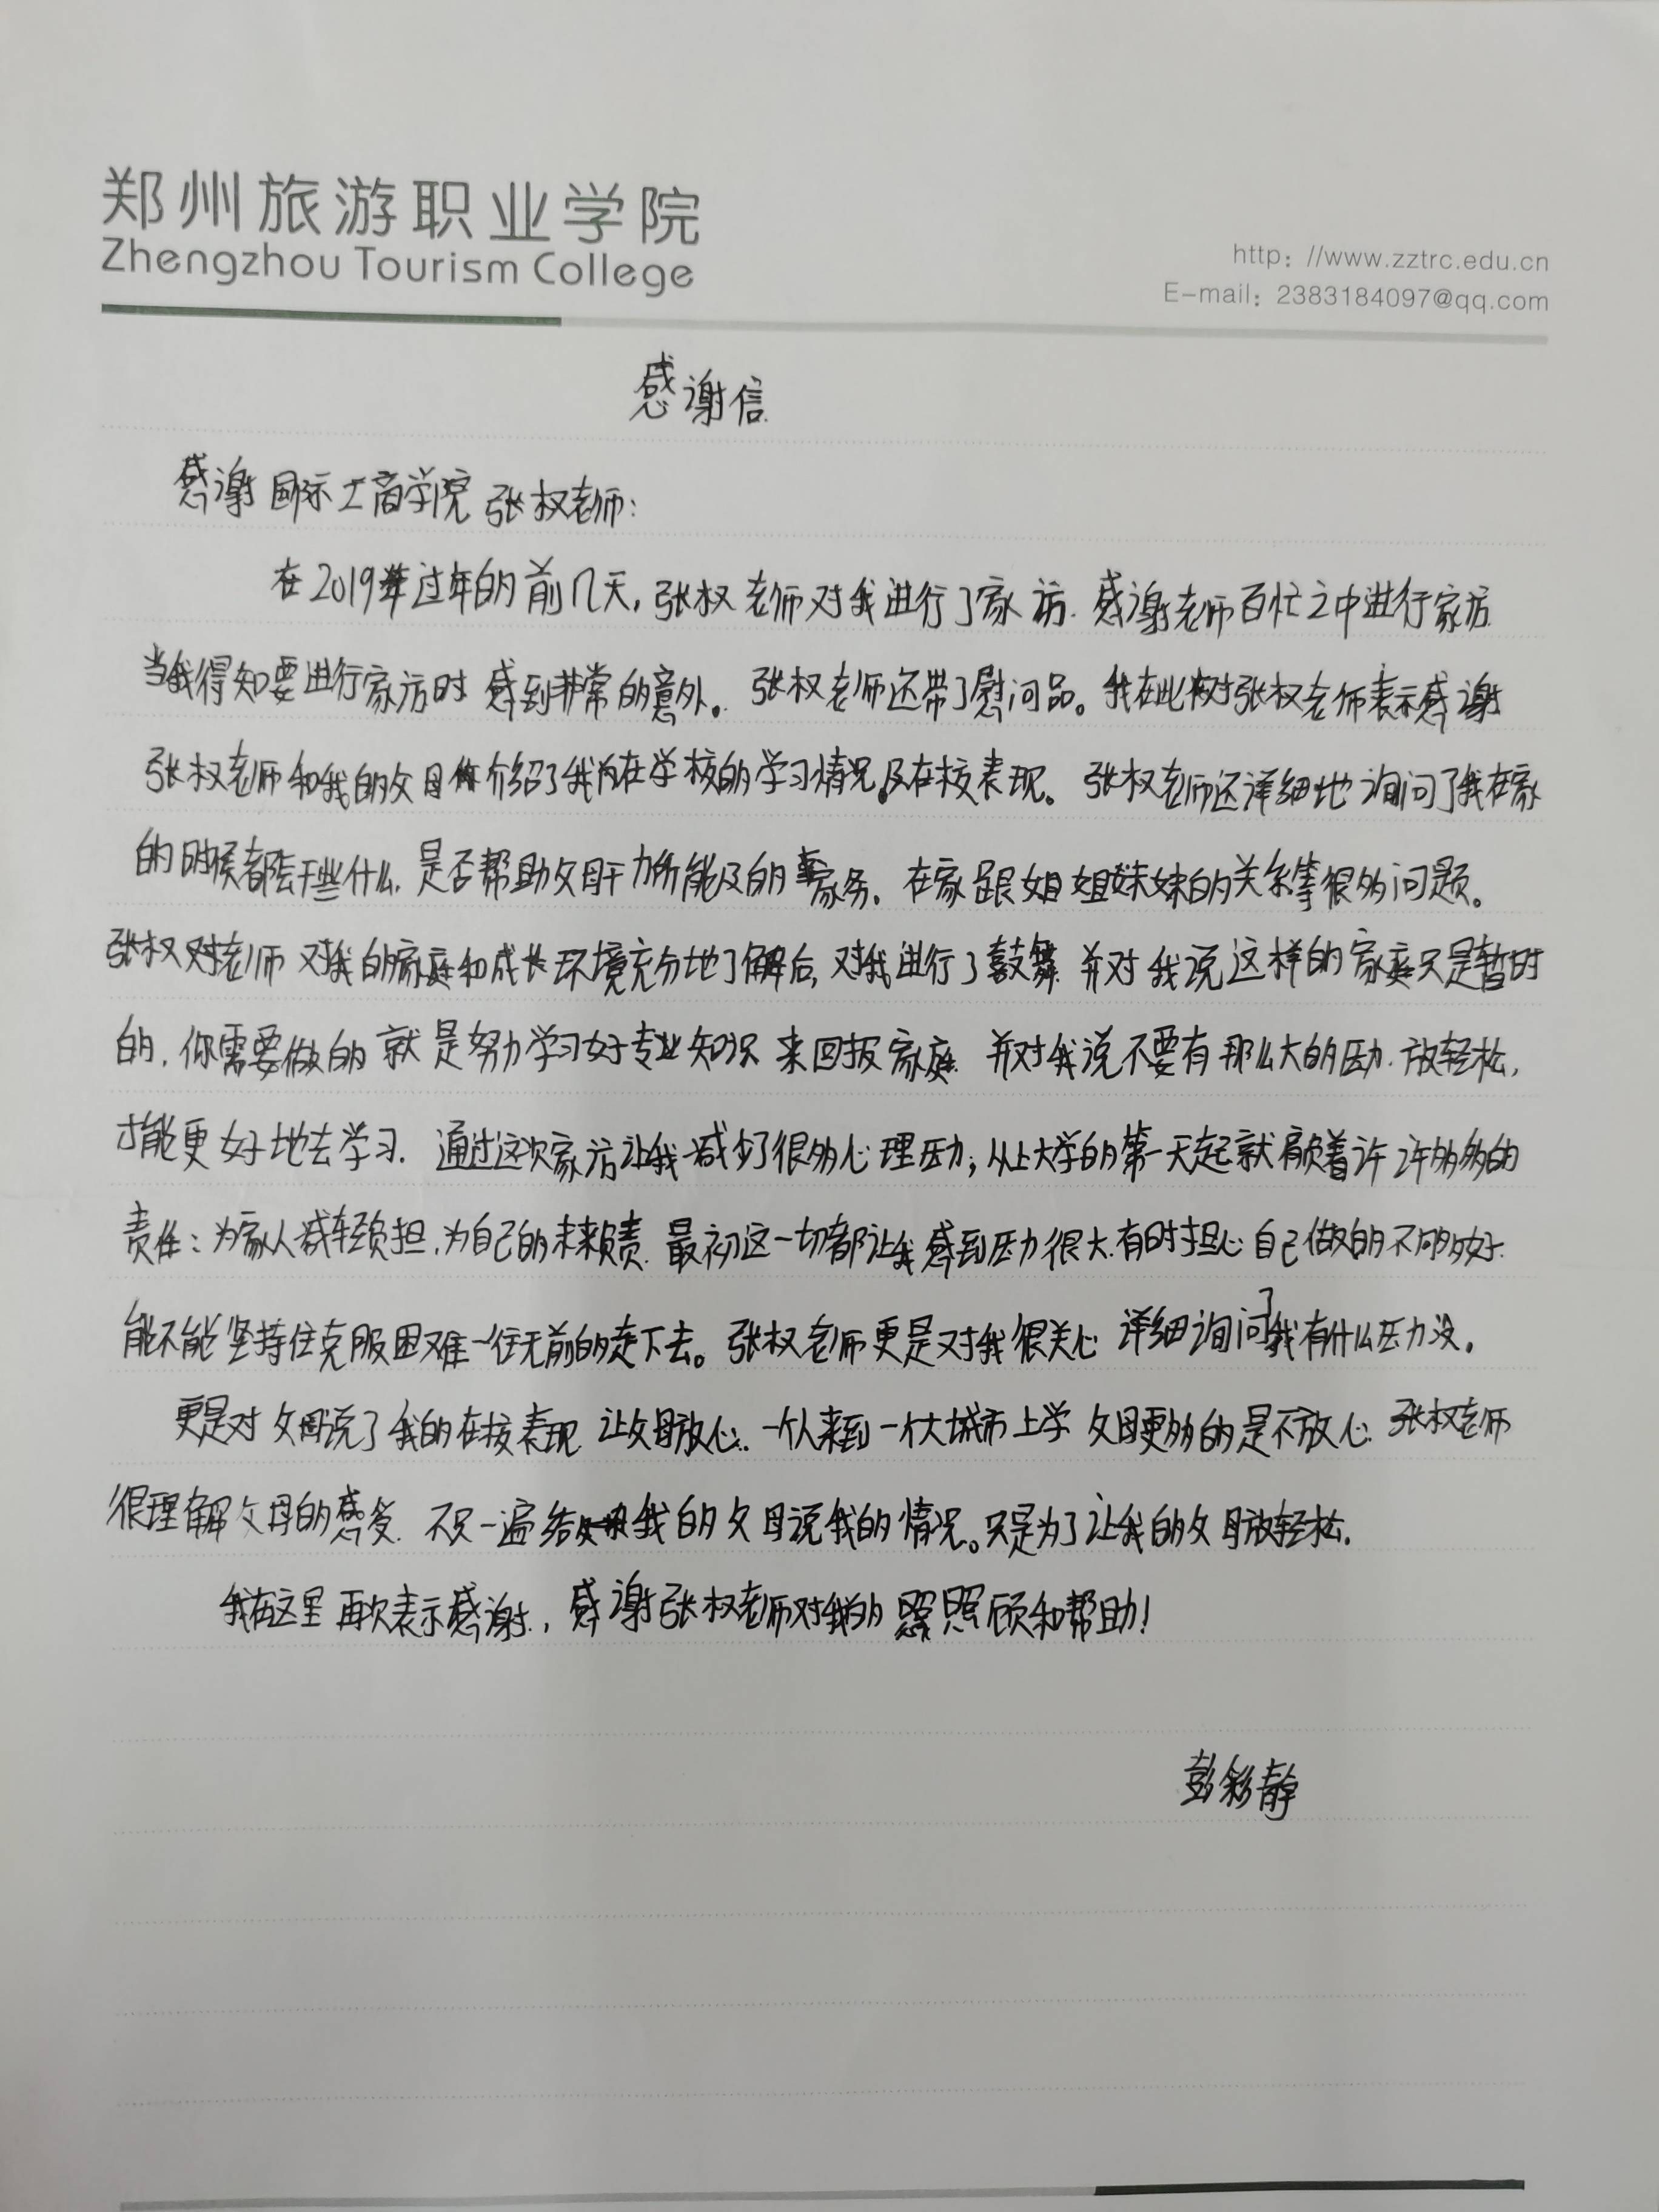 郑州旅游职业学院
Zhengzhou Tourism College
http：//www.zztrc.edu.cn
E-mail：2383184097@qq.com
感谢信
感谢国际工商学院张权老师：
在2019年过年的前几天，张权老师对我进行了家访.感谢老师百忙之中进行家访
当我得知要进行家访时 感到非常的意外。张权老师还带了慰问品。我在此对张权老师表示感谢
张权老师和我的父母介绍了我在学校的学习情况及在校表现。张权老师还详细地询问了我在家
的时候都会干些什么，是否帮助父母干力所能及的家务。在家跟姐姐妹妹的关系等很多问题。
张权老师对我的家庭和成长环境充分地了解后，对我进行了鼓舞 并对我说这样的家庭只是暂时
的，你需要做的就是努力学习好专业知识 来回报家庭 并对我说不要有那么大的压力.放轻松，
才能更好地去学习. 通过这次家访让我减少了很多心理压力，从上大学的第一天起就肩负着许许多多的
责任：为家人减轻负担，为自己的未来负责. 最初这一切都让我感到压力很大.有时担心自己做的不够好.
能不能坚持住克服困难一往无前的走下去。张权老师更是对我很关心 详细询问了我有什么压力没。
更是对父母说了我的在校表现 让父母放心. 一个人来到一个大城市上学 父母更多的是不放心. 张权老师
很理解父母的感受. 不只一遍给我的父母说我的情况。只是为了让我的父母放轻松.
我在这里再次表示感谢.，感谢张权老师对我的照顾和帮助！
彭彩静